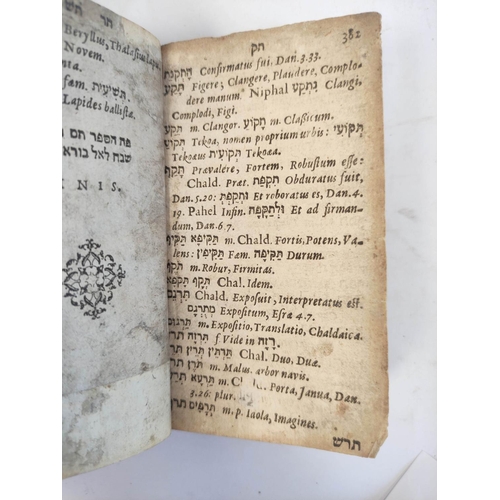 תר תש
Beryllus, Thalassius lapis
Novem.
תשיעית fæm.
Lapides ballistæ
תם הספר
שבח לאל בורא
NIS.
תק 382
Confirmatus sui. Dan. 3.33.
תקע Figere; Clangere, Plaudere, Complo-
dere manum. Niphal נתקע Clangi,
Complodi, Figi.
תקע m. Clangor. תקוע m. Classicum.
תקוע Tekoa, nomen proprium urbis: תקועי
Tekoæus תקועית Tekoæa.
תקף Prævalere, Fortem, Robustum esse:
Chald. Præt. תקפת Obduratus fuit,
Dan. 5.20: ותקפת Et roboratus es, Dan. 4.
19. Pahel Infin. ולתקפה Et ad firman-
dum, Dan. 6.7.
תקיף תקיפא m. Chald. Fortis, Potens, Va-
lens: תקיפין Fæm. תקיפה Durum.
תקף m. Robur, Firmitas.
תקף תקפא Chal. Idem.
תרגם Chald. Exposuit, Interpretatus est.
מתרגם Expositum, Esræ 4.7.
תרגום m. Expositio, Translatio, Chaldaica.
תרזה f. Vide in רזה.
תרין תרתין Chal. Duo, Duæ.
תרן m. Malus, arbor navis.
תרע תרעא m. Porta, Janua, Dan.
3.26: plur.
תרפים m. p. Idola, Imagines.
תרש